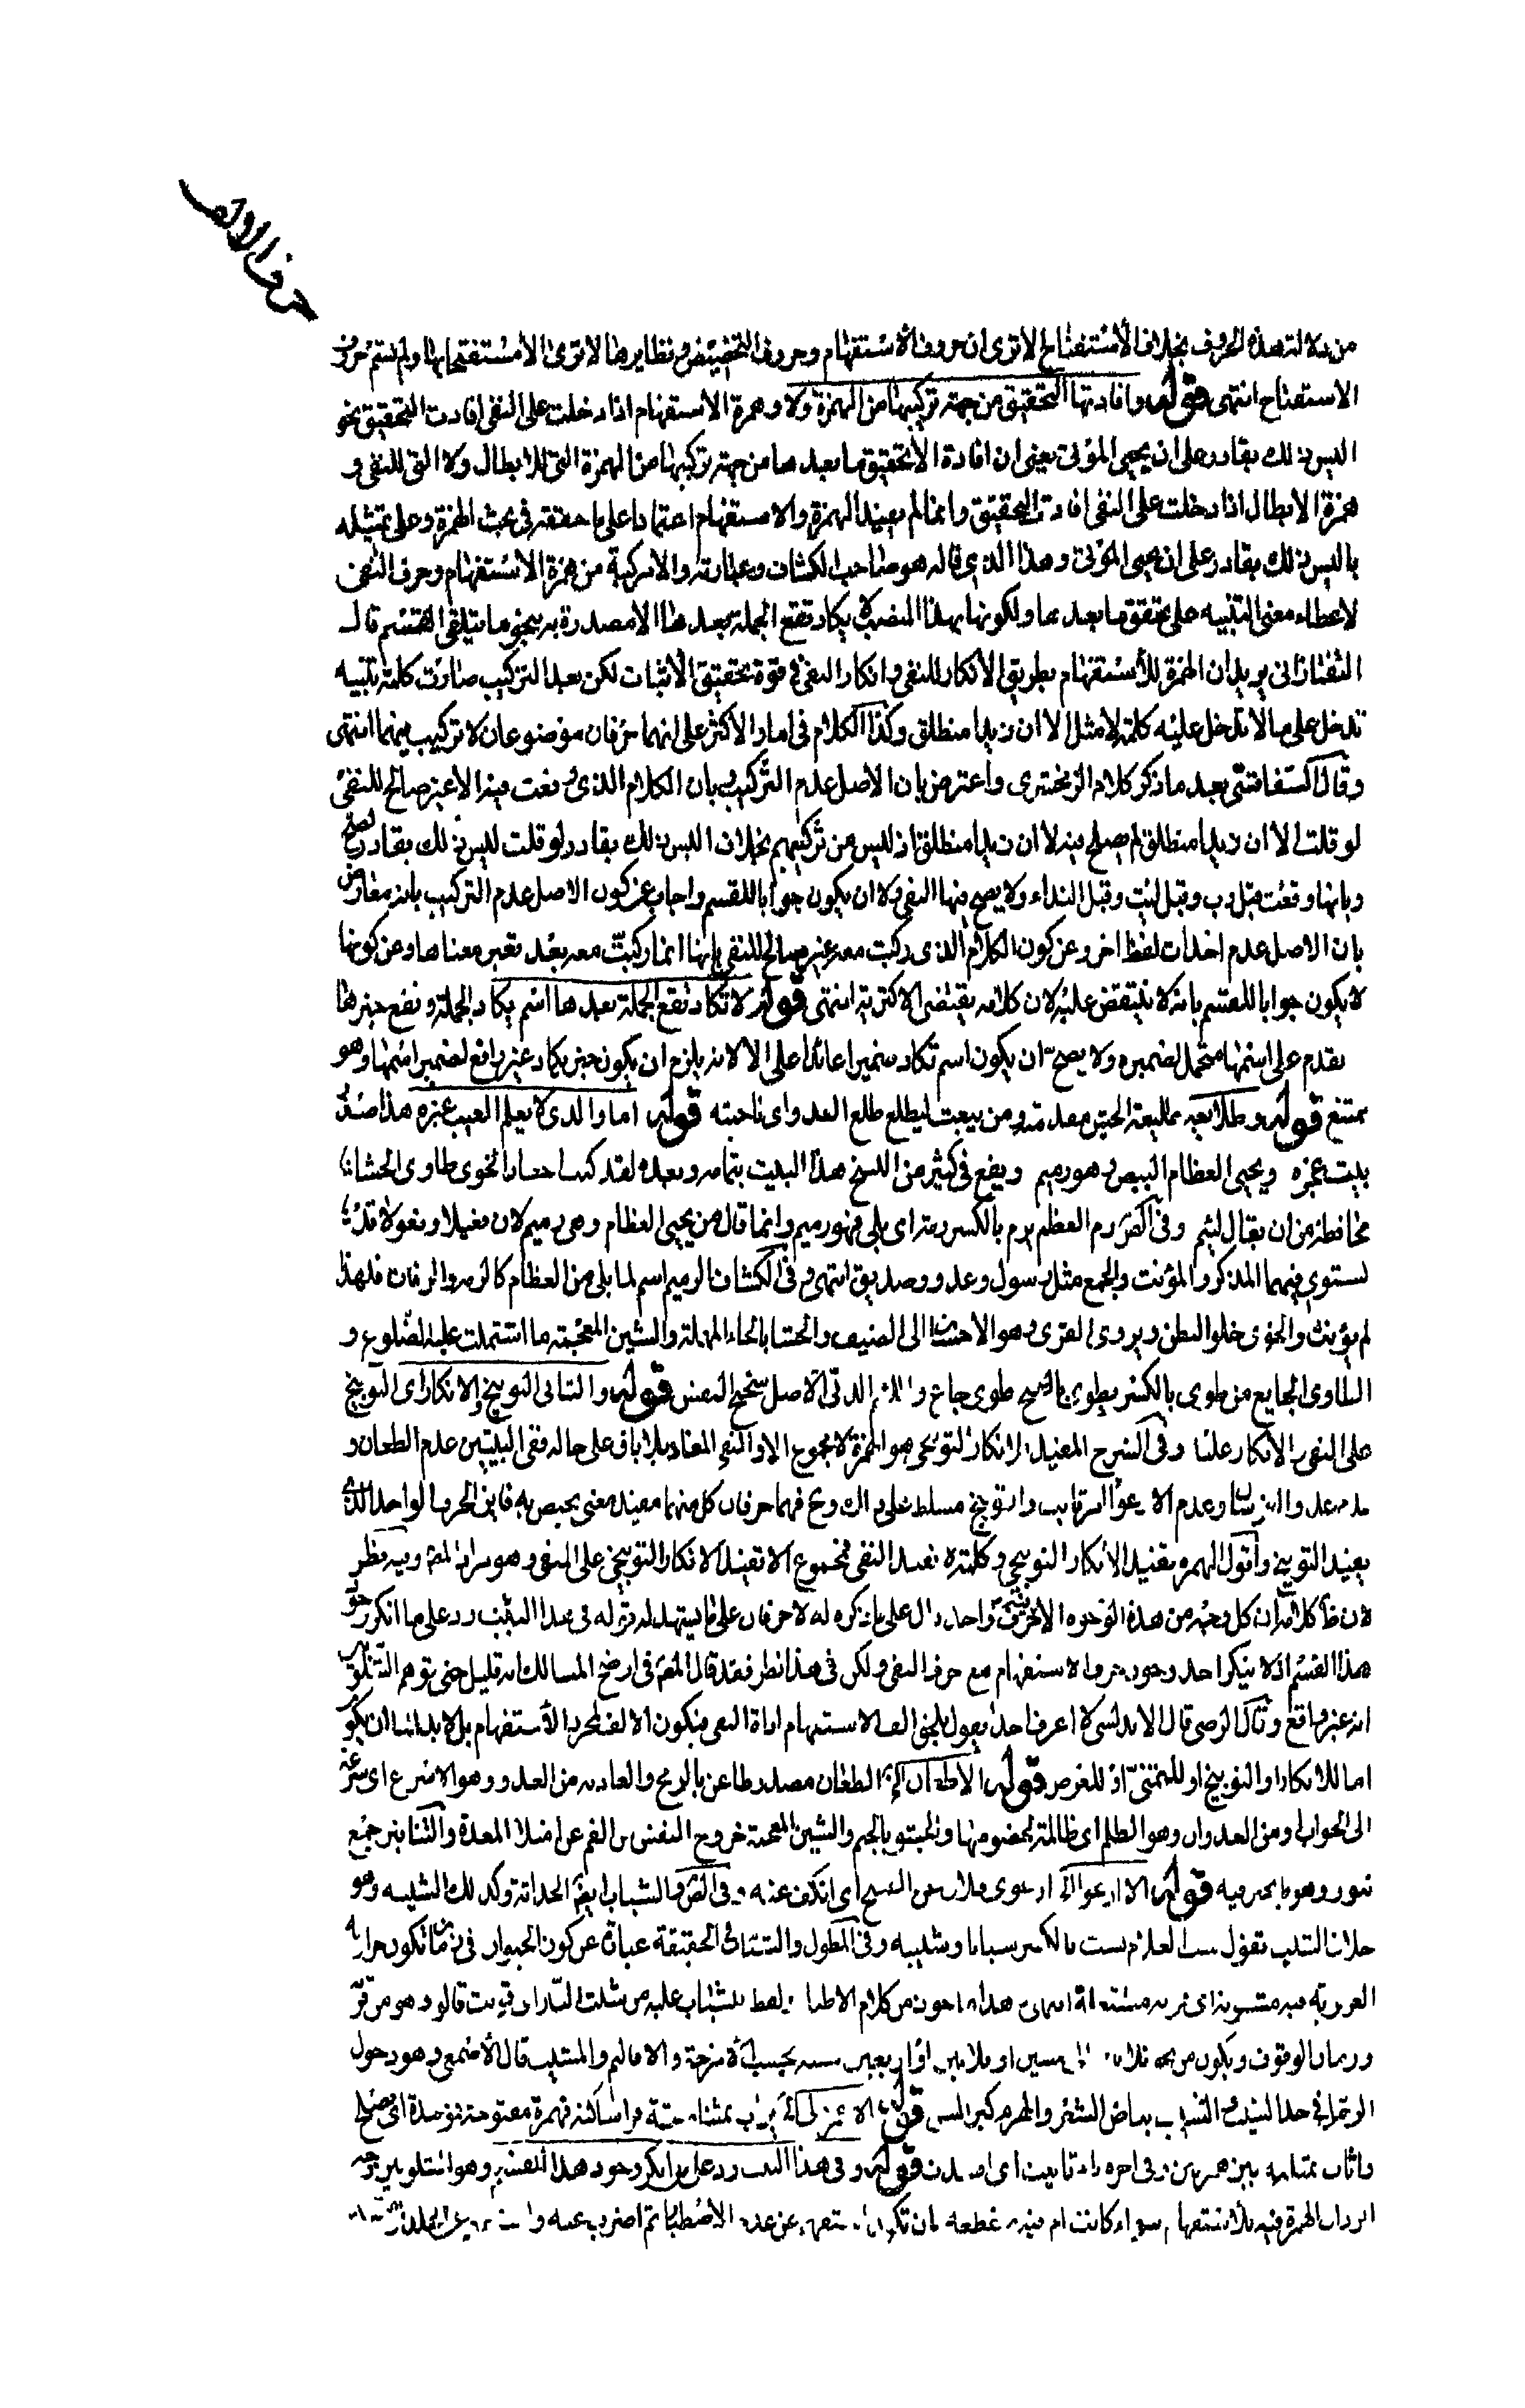 حرف الالف
من دلالة هذه الحروف بخلاف الاستفتاح الا ترى ان حروف الاستفهام وحروف التحضيض ونظايرها لا ترى الا مستفتحا بها ولم تسم حروف
الاستفتاح انتهى قوله وافادتها التحقيق من جهة تركيبها من الهمزة ولا وهمزة الاستفهام اذا دخلت على النفى افادت التحقيق نحو
اليس ذلك بقادر على ان يحيى الموتى يعنى ان افادة الا تحقيق ما بعدها من جهة تركيبها من الهمزة التى للابطال ولا التى للنفى و
همزة الابطال اذا دخلت على النفى افادت التحقيق وانما لم يقيد الهمزة والاستفهام اعتمادا على ما حققه فى بحث الهمزة وعلى تمثيله
باليس ذلك بقادر على ان يحيى الموتى وهذا الذى قاله هو صاحب الكشاف وعبارته والا مركبة من همزة الاستفهام وحرف النفى
لاعطاء معنى التنبيه على تحقق ما بعدها ولكونها بهذا المنصب لا يكاد تقع الجملة بعدها الا مصدرة بنحو ما يتلقى القسم قال
التفتازانى يريد ان الهمزة للاستفهام بطريق الانكار للنفى وانكار النفى فى قوة تحقيق الاثبات لكن بعد التركيب صارت كلمة تنبيه
تدخل على ما لا تدخل عليه كلمة لا مثل الا ان زيدا منطلق وكذا الكلام فى اما والاكثر على انهما حرفان موضوعان لا تركيب فيهما انتهى
وقال السفاقسى بعد ما ذكر كلام الزمخشرى واعترض بان الاصل عدم التركيب وبان الكلام الذى وقعت فيه الا غير صالح للنفى
لو قلت الا ان زيدا منطلق لم يصلح فيه لا ان زيدا منطلق اذ ليس من تركيبهم بخلاف اليس ذلك بقادر لو قلت ليس ذلك بقادر لصح
وبانها وقعت قبل رب وقبل ليت وقبل النداء ولا يصح فيها النفى ولا ان يكون جوابا للقسم واجاب عن كون الاصل عدم التركيب بانه معارض
بان الاصل عدم احداث لفظ اخر وعن كون الكلام الذى ركبت معه غير صالح للنفى بانها انما ركبت معه بعد تغير معناها وعن كونها
لا يكون جوابا للقسم بانه لا ينتقض عليه لان كلامه يقتضى الاكثرية انتهى قوله لا تكاد تقع الجملة بعدها اسم يكاد الجملة وتقع خبرها
تقدم على اسمها متحمل لضميره ولا يصح ان يكون اسم تكاد ضميرا عائدا على الا لانه يلزم ان يكون خبر يكاد غير رافع لضمير اسمها وهو
ممتنع قوله وطلايعه طليعة الجيش مقدمته ومن يبعث ليطلع طلع العدو اى ناحيته قوله اما والذى لا يعلم الغيب غيره هذا صدر
بيت عجزه ويحيى العظام البيض وهو رميم ويقع فى كثير من النسخ هذا البيت بتمامه وبعده لقد كنت اختار الخوى طاوى الحشا
محافظة من ان يقال لئيم وفى الص رم العظم يرم بالكسر رمة اى بلى فهو رميم وانما قال من يحيى العظام وهى رميم لان فعيلا وفعولا قد
يستوى فيهما المذكر والمؤنث والجمع مثل رسول وعدو وصديق انتهى وفى الكشاف الرميم اسم لما بلى من العظام كالرمة والرفات فلهذا
لم يؤنث والخوى خلو البطن ويروى القرى وهو الاحسان الى الضيف والحشا بالحاء المهملة والشين المعجمة ما اشتملت عليه الضلوع و
الطاوى الجايع من طوى بالكسر يطوى بالفتح طوى جاع واللئيم الدنى الاصل شحيح النفس قوله والثانى التوبيخ والانكار اى التوبيخ
على النفى والانكار علينا وفى الشرح المفيد للانكار التوبيخى هو الهمزة لا مجموع الا والنفى المفاد بلا باق على حاله ففى البيتين عدم الطعان و
وعدم الا والتوبيخ مسلط على ذلك وح فهما حرفان كل منهما مفيد معنى يختص به فاين الحرف الواحد الذى
يفيد التوبيخ واقول الهمزة تفيد الانكار التوبيخى وكلمة لا تفيد النفى فمجموع الا تفيد الانكار التوبيخى على النفى وهو مراد المص وفيه نظر
لان ظ كلامه ان كل وجه من هذه الوجوه الا حرف واحد دال على ما ذكره له لا حرفان قوله فى هذا البيت رد على ما انكر وجود
هذا القسم اذ لا ينكر احد وجود حرف الاستفهام مع حرف النفى ولكن فى هذا نظر فقد قال المص فى اوضح المسالك انه قليل حتى توهم الشلوبين
انه غير واقع وقال الرضى قال الاندلسى لا اعرف احدا يقول بلحق الف الاستفهام اداة النفى فيكون الالف لمجرد الاستفهام بل لا بد اما ان يكون
اما للانكار او التوبيخ او للتمنى او للعرض قوله الا طعان الخ الطعان مصدر طاعن بالرمح والعادية من العدو وهو الاسراع اى سرعة
الى الجواب او من العدوان وهو الظلم اى ظالمة لخصومها والجشو بالجيم والشين المعجمة خروج النفس من الفم عن امتلاء المعدة والتنانير جمع
تنور وهو ما يخبز فيه قوله الا ارعواء الخ ارعوى فلان عن القبيح اى انكف عنه وفى الص والشباب ايض الحداثة وكذلك الشبيبة وهو
خلاف الشيب تقول شب الغلام يشب بالكسر شبابا وشبيبة وفى المطول والشباب فى الحقيقة عبارة عن كون الحيوان فى زمان تكون حرارته
الغريزية فيه مشبوبة اى قوية مشتعلة انتهى هذا ماخوذ من كلام الاطباء ولفظ الشباب عليه من شبت النار اى قويت قالوا وهو من قوة
وزمان الوقوف ويكون من الى او او اربعين سنة بحسب الامزجة والاقاليم والمشيب قال الاصمعى هو دخول
الرجل فى حد الشيب والشيب بياض الشعر والهرم كبر السن قوله الا عمر ساكنة فهمزة مفتوحة فموحدة اى اصلح
قوله وفى هذا البيت رد على من انكر وجود هذا القسم وهو الشلوبين